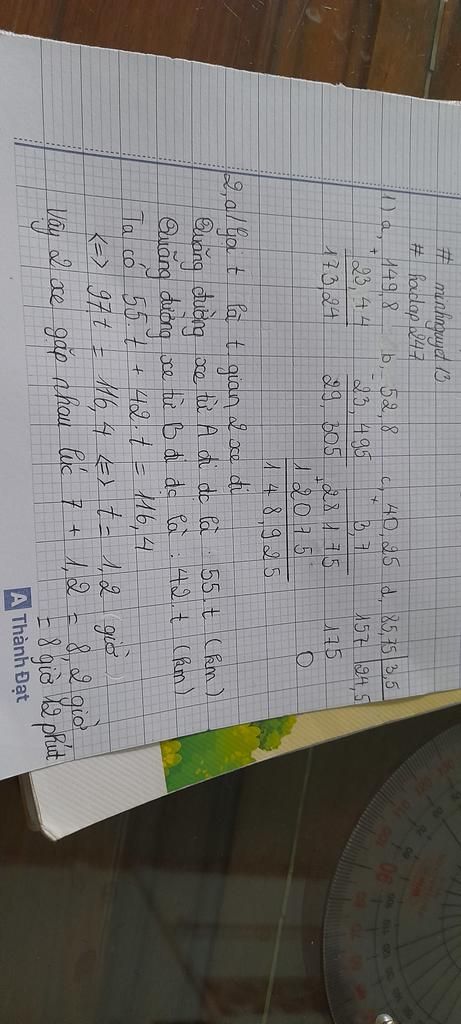 # minhnguyet 13
# hoidap 247
1) a, 149,8 b, 52,8 c, 40,25 d, 85,75 | 3,5
+ 23,44 - 23,495 + 3,7 157 24,5
173,24 29,305 28175 175
+ 12075 0
148,925
2, a/ Gọi t là t gian 2 xe đi
Quãng đường xe từ A đi đc là : 55.t (km)
Quãng đường xe từ B đi đc là : 42.t (km)
Ta có 55.t + 42.t = 116,4
<=> 97.t = 116,4 <=> t = 1,2 (giờ)
Vậy 2 xe gặp nhau lúc 7 + 1,2 = 8,2 giờ
= 8 giờ 12 phút
A Thành Đạt